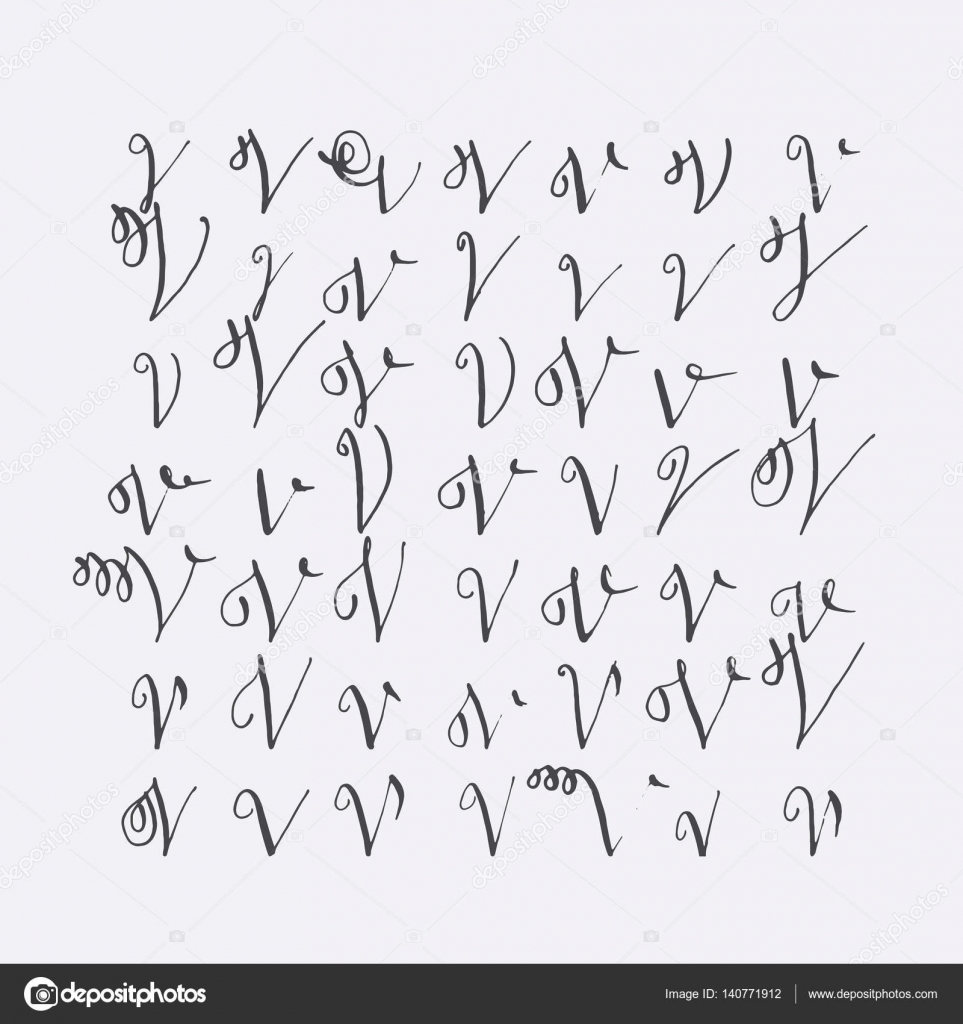 V V V V V V V
V V V V V V V
V V V V V V V
V V V V V V V
V V V V V V V
V V V V V V V
V V V V V V V
depositphotos
Image ID: 140771912 www.depositphotos.com